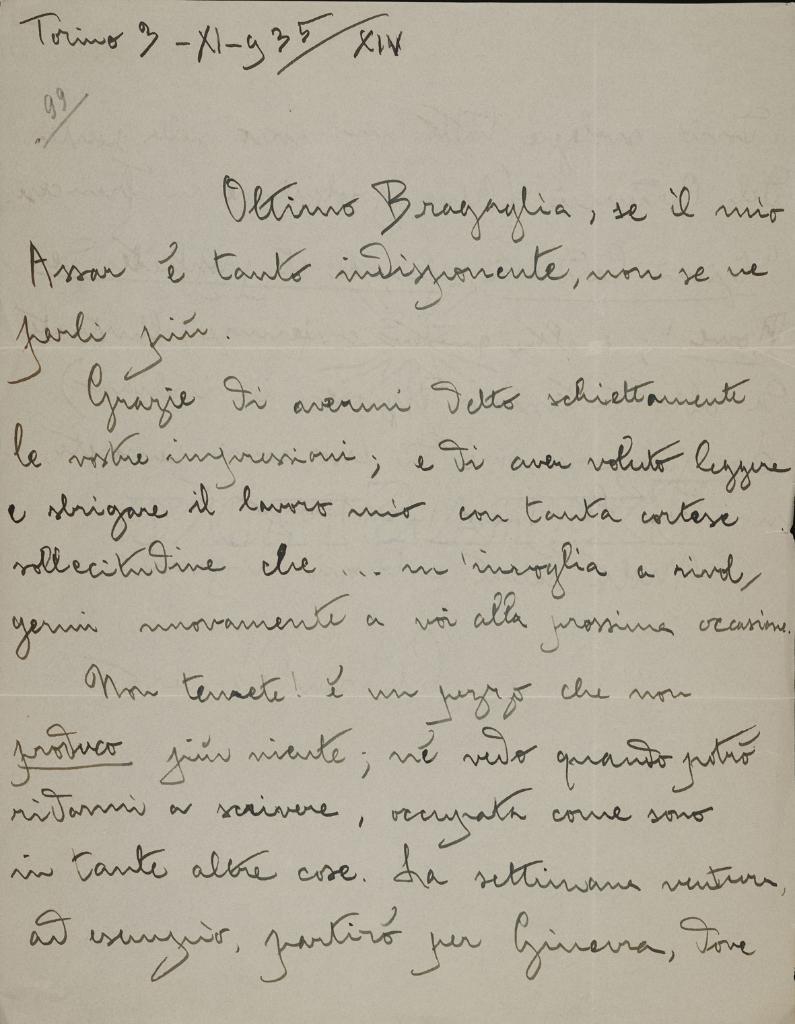 Torino 3 -XI-935/XIV
99
Ottimo Bragaglia, se il mio
Assar è tanto indisponente, non se ne
parli più.
Grazie di avermi detto schiettamente
le vostre impressioni; e di aver voluto leggere
e sbrigare il lavoro mio con tanta cortese
sollecitudine che ... m'invoglia a rivol/
germi nuovamente a voi alla prossima occasione.
Non temete! è un pezzo che non
produco più niente; nè vedo quando potrò
ridarmi a scrivere, occupata come sono
in tante altre cose. La settimana ventura,
ad esempio, partirò per Ginevra, dove